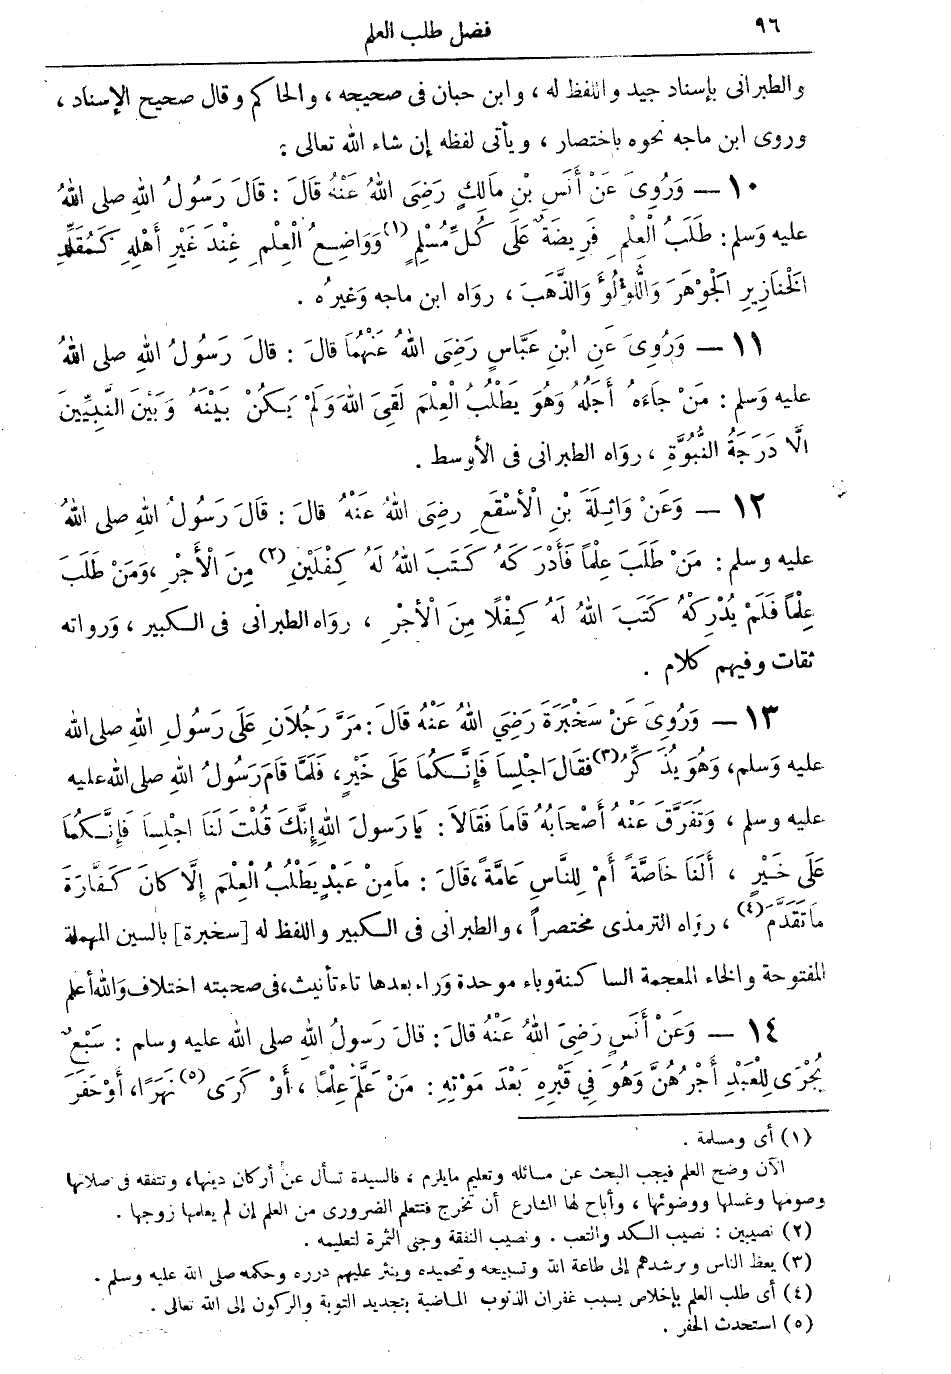 ٩٦
فضل طلب العلم
والطبرانى بإسناد جيد واللفظ له ، وابن حبان فى صحيحه ، والحاكم وقال صحيح الإسناد ،
وروى ابن ماجه نحوه باختصار ، ويأتى لفظه إن شاء الله تعالى :
١٠ — وَرُوِىَ عَنْ أَنَسِ بْنِ مَالِكٍ رَضِىَ اللهُ عَنْهُ قَالَ : قَالَ رَسُولُ اللهِ صلى اللهُ
عليه وَسلم : طَلَبُ الْعِلْمِ فَرِيضَةٌ عَلَى كُلِّ مُسْلِمٍ (١) وَوَاضِعُ الْعِلْمِ عِنْدَ غَيْرِ أَهْلِهِ كَمُقَلِّدِ
الْخَنَازِيرِ الْجَوْهَرَ وَاللُّؤْلُؤَ وَالذَّهَبَ ، رواه ابن ماجه وَغيرُه .
١١ — وَرُوِىَ عَنِ ابْنِ عَبَّاسٍ رَضِىَ اللهُ عَنْهُمَا قالَ : قالَ رَسُولُ اللهِ صلى اللهُ
عليه وَسلم : مَنْ جاءَه ُ أَجَلُهُ وَهُوَ يَطْلُبُ الْعِلْمَ لَقِىَ اللهَ وَلَمْ يَكُنْ بَيْنَهُ وَبَيْنَ النَّبِيِّينَ
الَّا دَرَجَةُ النُّبُوَّةِ ، روَاه الطبرانى فى الأوسط .
١٢ — وَعَنْ وَاثِلَةَ بْنِ الْأَسْقَعِ رضِىَ اللهُ عَنْهُ قالَ : قَالَ رَسُولُ اللهِ صلى اللهُ
عليه وسلم : مَنْ طَلَبَ عِلْماً فَأَدْرَكَهُ كَتَبَ اللهُ لَهُ كِفْلَيْنِ (٢) مِنَ الْأَجْرِ ، وَمَنْ طَلَبَ
عِلْماً فَلَمْ يُدْرِكْهُ كَتَبَ اللهُ لَهُ كِفْلًا مِنَ الْأَجْرِ ، روَاه الطبرانى فى الكبير ، وَرواته
ثقات وفيهم كلام .
١٣ — وَرُوِىَ عَنْ سَخْبَرَةَ رَضِيَ اللهُ عَنْهُ قَالَ : مَرَّ رَجُلَانِ عَلَى رَسُولِ اللهِ صلى الله
عليه وَسلم، وَهُوَ يُذَكِّرُ (٣) فَقالَ اجْلِسا فَإِنَّكُمَا عَلَى خَيْرٍ ، فَلَمَّا قَامَ رَسُولُ اللهِ صلى الله عليه
وسلم ، وَتَفَرَّقَ عَنْهُ أَصْحَابُهُ قَاما فَقَالَا : يَا رَسولَ اللهِ إِنَّكَ قُلْتَ لَنَا اجْلِسا فَإِنَّكُمَا
عَلَى خَيْرٍ ، أَلَنَا خَاصَّةً أَمْ لِلنَّاسِ عَامَّةً ، قَالَ : مامِنْ عَبْدٍ يَطْلُبُ الْعِلْمَ إِلَّا كَانَ كَفَّارَةَ
مَا تَقَدَّمَ (٤) ، روَاه الترمذى مختصراً ، والطبرانى فى الكبير واللفظ له [سخبرة] بالسين المهملة
المفتوحة والخاء المعجمة الساكنة وباء موحدة وَراء بعدها تاء تأنيث، فى صحبته اختلاف وَالله أعلم
١٤ — وَعَنْ أَنَسٍ رَضِىَ اللهُ عَنْهُ قالَ : قالَ رَسُولُ اللهِ صلى الله عليه وسلم : سَبْعٌ
يُجْرَى لِلْعَبْدِ أَجْرُهُنَّ وَهُوَ فِي قَبْرِهِ بَعْدَ مَوْتِهِ : مَنْ عَلَّمَ عِلْمًا ، أَوْ كَرَى (٥) نَهَرًا، أَوْ حَفَرَ
(١) أى ومسلمة .
الآن وضح العلم فيجب البحث عن مسائله وتعليم مايلزم ، فالسيدة تسأل عن أركان دينها، وتتفقه فى صلاتها
وصومها وغسلها ووضوئها ، وأباح لها الشارع أن تخرج فتتعلم الضرورى من العلم إن لم يعلمها زوجها .
(٢) نصيبين : نصيب الكد والتعب . ونصيب النفقة وجنى الثمرة لتعليمه .
(٣) يعظ الناس ويرشدهم إلى طاعة الله وتسبيحه وتحميده وينثر عليهم درره وحكمه صلى الله عليه وسلم .
(٤) أى طلب العلم بإخلاص يسبب غفران الذنوب الماضية بتجديد التوبة والركون إلى الله تعالى .
(٥) استحدث الحفر .